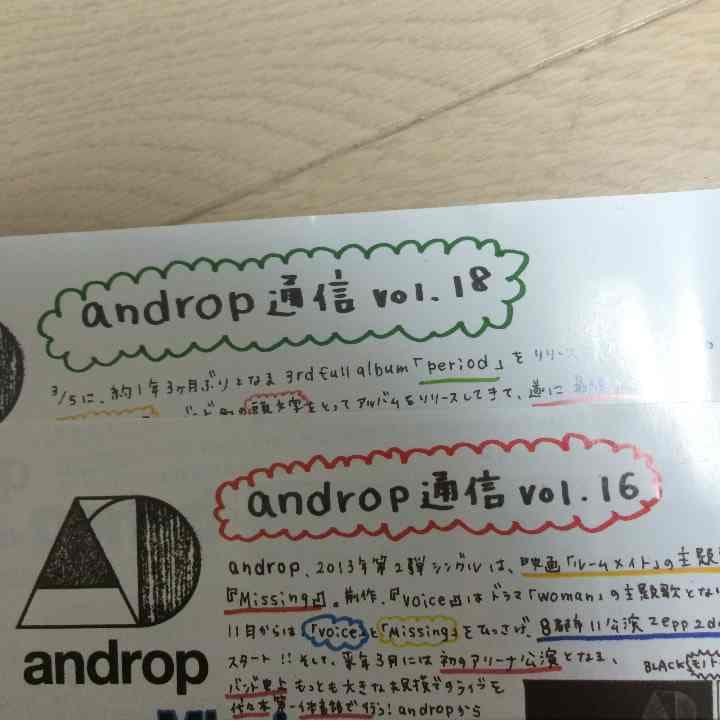 androp 通信 vol.18
3/5に、約1年3ヶ月ぶりとなる 3rd full album「period」を リリース
頭文字をとってアルバムをリリースしてきて、遂に
androp 通信 vol.16
androp、2013年第2弾シングルは、映画「ルームメイト」の主題
『Missing』。前作、『Voice』はドラマ「woman」の主題歌とな
11月からは「voice」と「Missing」をひっさげ、8都市11公演 zepp 2d
スタート!! そして、来年3月には初のアリーナ公演となる、
BLACK
バンド史上 もっとも大きなお見複でのライブを
代々木第一体育館で行う! andropから
androp